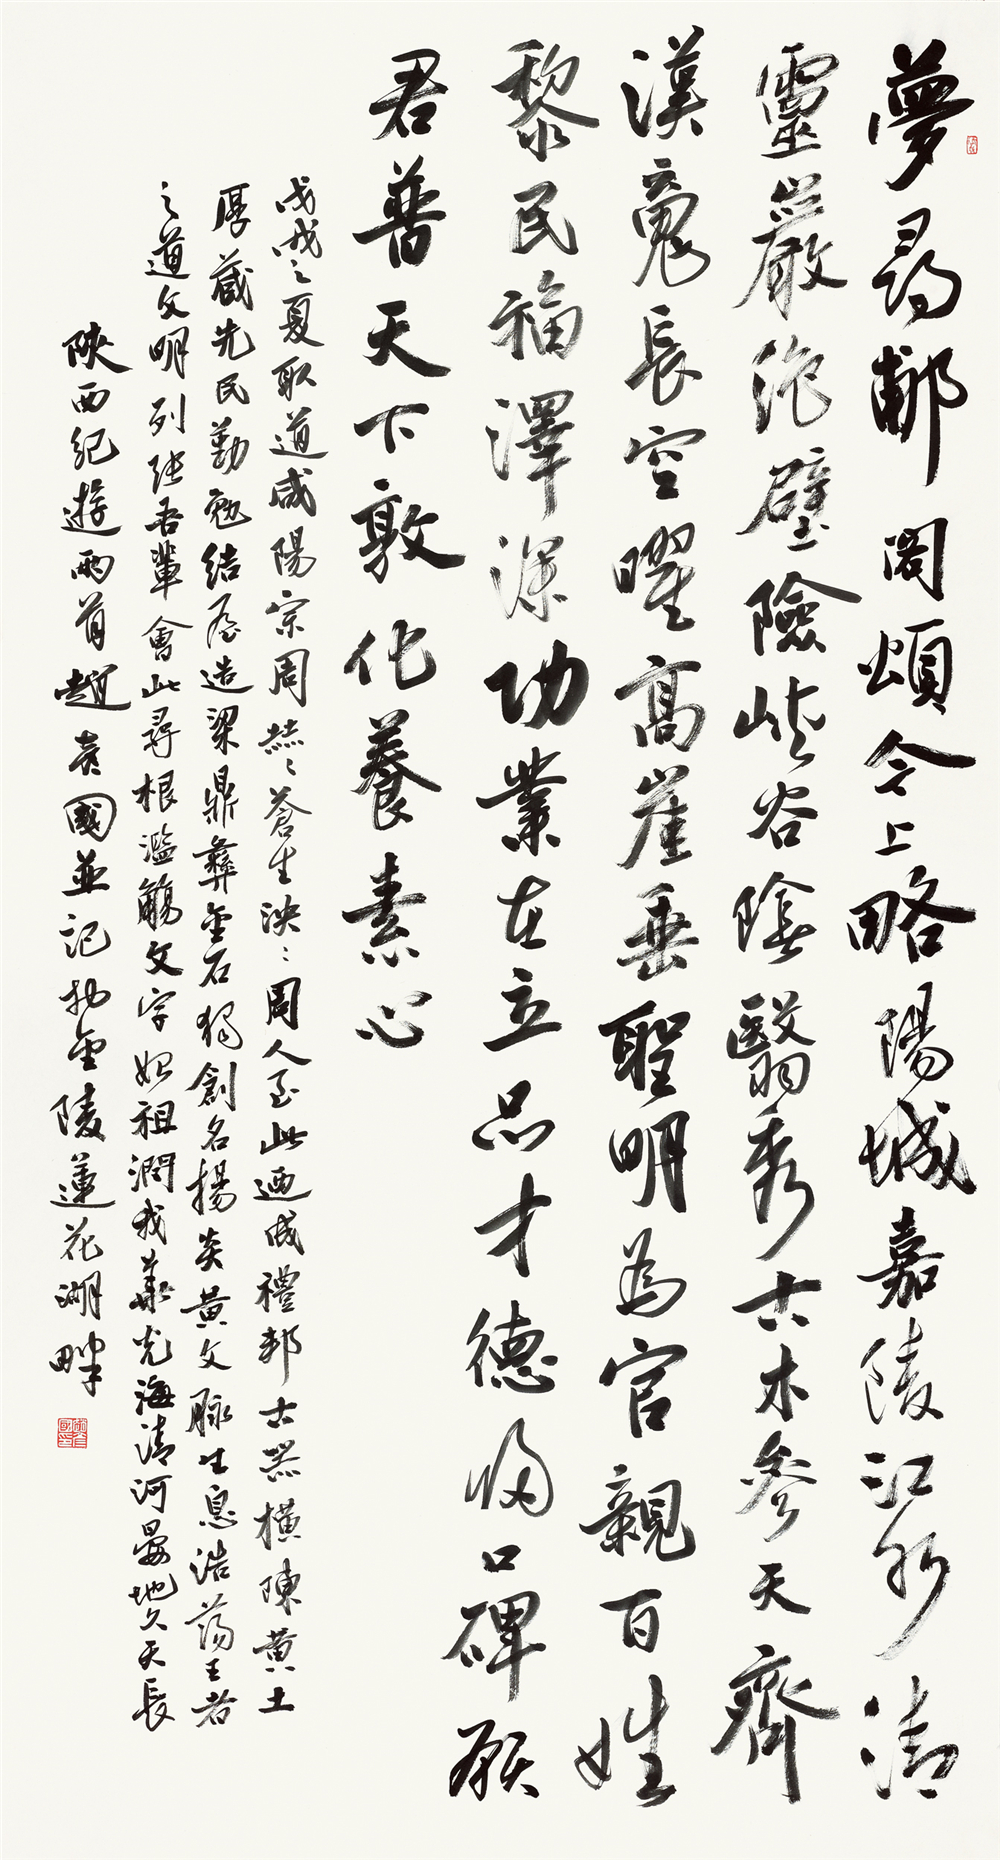 夢尋郙閣頌今上略陽城嘉陵江水清
靈嚴絶壁險峻谷陰翳秀古木參天齊
漢魂長空曜高崖垂聖明為官親百姓
黎民福澤深功業在立品才德鴻口碑願
君普天下敦化養素心
戊戌之夏取道咸陽宗周赫〻蒼生泱〻周人至此迺成禮邦古器橫陳黄土
厚藏先民勤勉結廬造梁鼎彝金石獨創名揚炎黄文脈生息浩蕩王者
之道文明列張吾輩會此尋根濫觴文字始祖潤我華光海清河晏地久天長
陝西紀遊兩首趙彥國並記於金陵蓮花湖畔